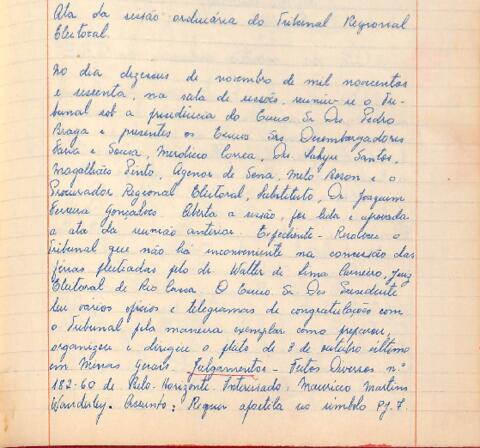 Ata da sessão ordinária do Tribunal Regional
Eleitoral.
No dia dezesseis de novembro de mil novecentos
e sessenta, na sala de sessões, reuniu-se o Tri-
bunal sob a presidência do Exmo. Sr. Des. Pedro
Braga e presentes os Exmos. Srs. Desembargadores
Faria e Sousa, Merolino Corrêa, Drs. Santos,
Magalhães Pinto, Agenor de Sena, Melo e o
Procurador Regional Eleitoral, Substituto, Dr. Joaquim
Ferreira Gonçalves. Aberta a sessão, foi lida e aprovada
a ata da reunião anterior. Expediente - Resolveu o
Tribunal que não há inconveniente na concessão das
férias pleiteadas pelo dr. Walter de Lima Carneiro, Juiz
Eleitoral de Rio Casca. O Exmo. Sr. Des. Presidente
leu vários ofícios e telegramas de congratulações com
o Tribunal pela maneira exemplar como preparou,
organizou e dirigiu o pleito de 3 de outubro último
em Minas Gerais. Julgamentos - Feitos Diversos n.º
182-60 de Belo Horizonte. Interessado: Maurício Martins
Wanderley. Assunto: Requer apostila no símbolo PJ.7.